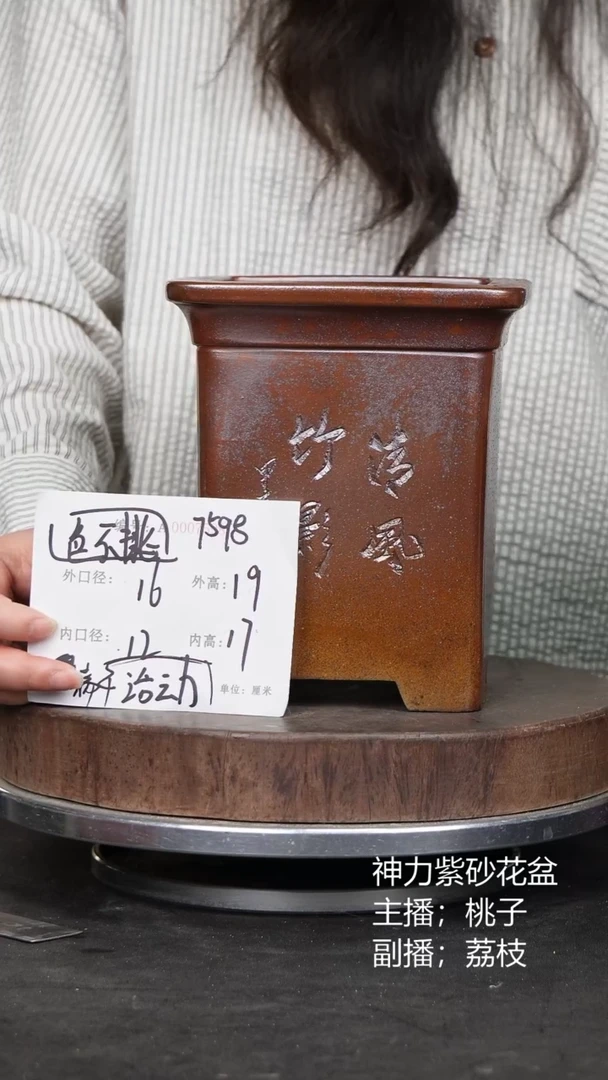 清风
竹影
色不挑 7598
外口径: 16 外高: 19
内口径: 12 内高: 17
单位: 厘米
神力紫砂花盆
主播；桃子
副播；荔枝